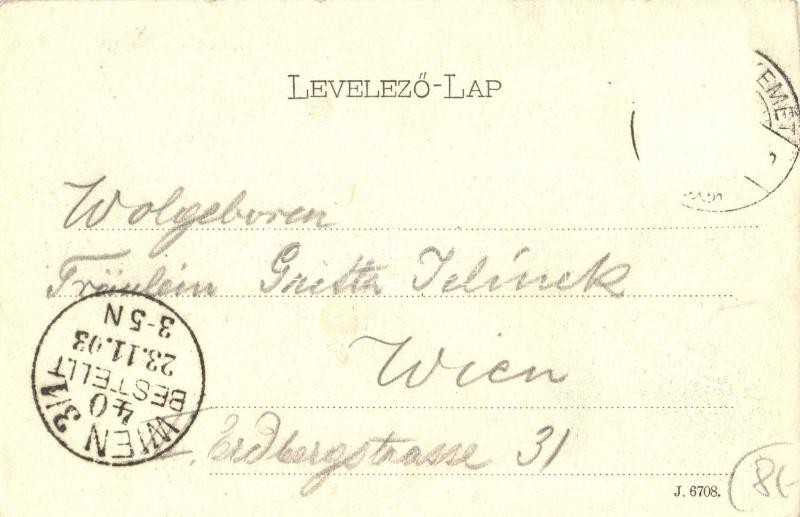 LEVELEZŐ-LAP
KEMÉT
Wolgeboren
Fräulein Gretta Jelínek
Wien
Erdbergstrasse 31
WIEN 3/1
40
BESTELLT
23.11.03
3-5N
J. 6708.